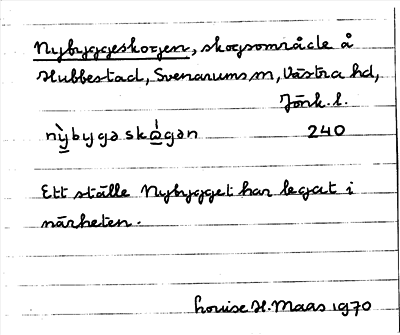 Nybyggeskogen, skogsområde å
Hubbestad, Svenarums sn, Västra hd,
Jönk. l.
nỳ̲bygəskǻ̲gən 240
Ett ställe Nybygget har legat i
närheten.
Louise H. Maas 1970